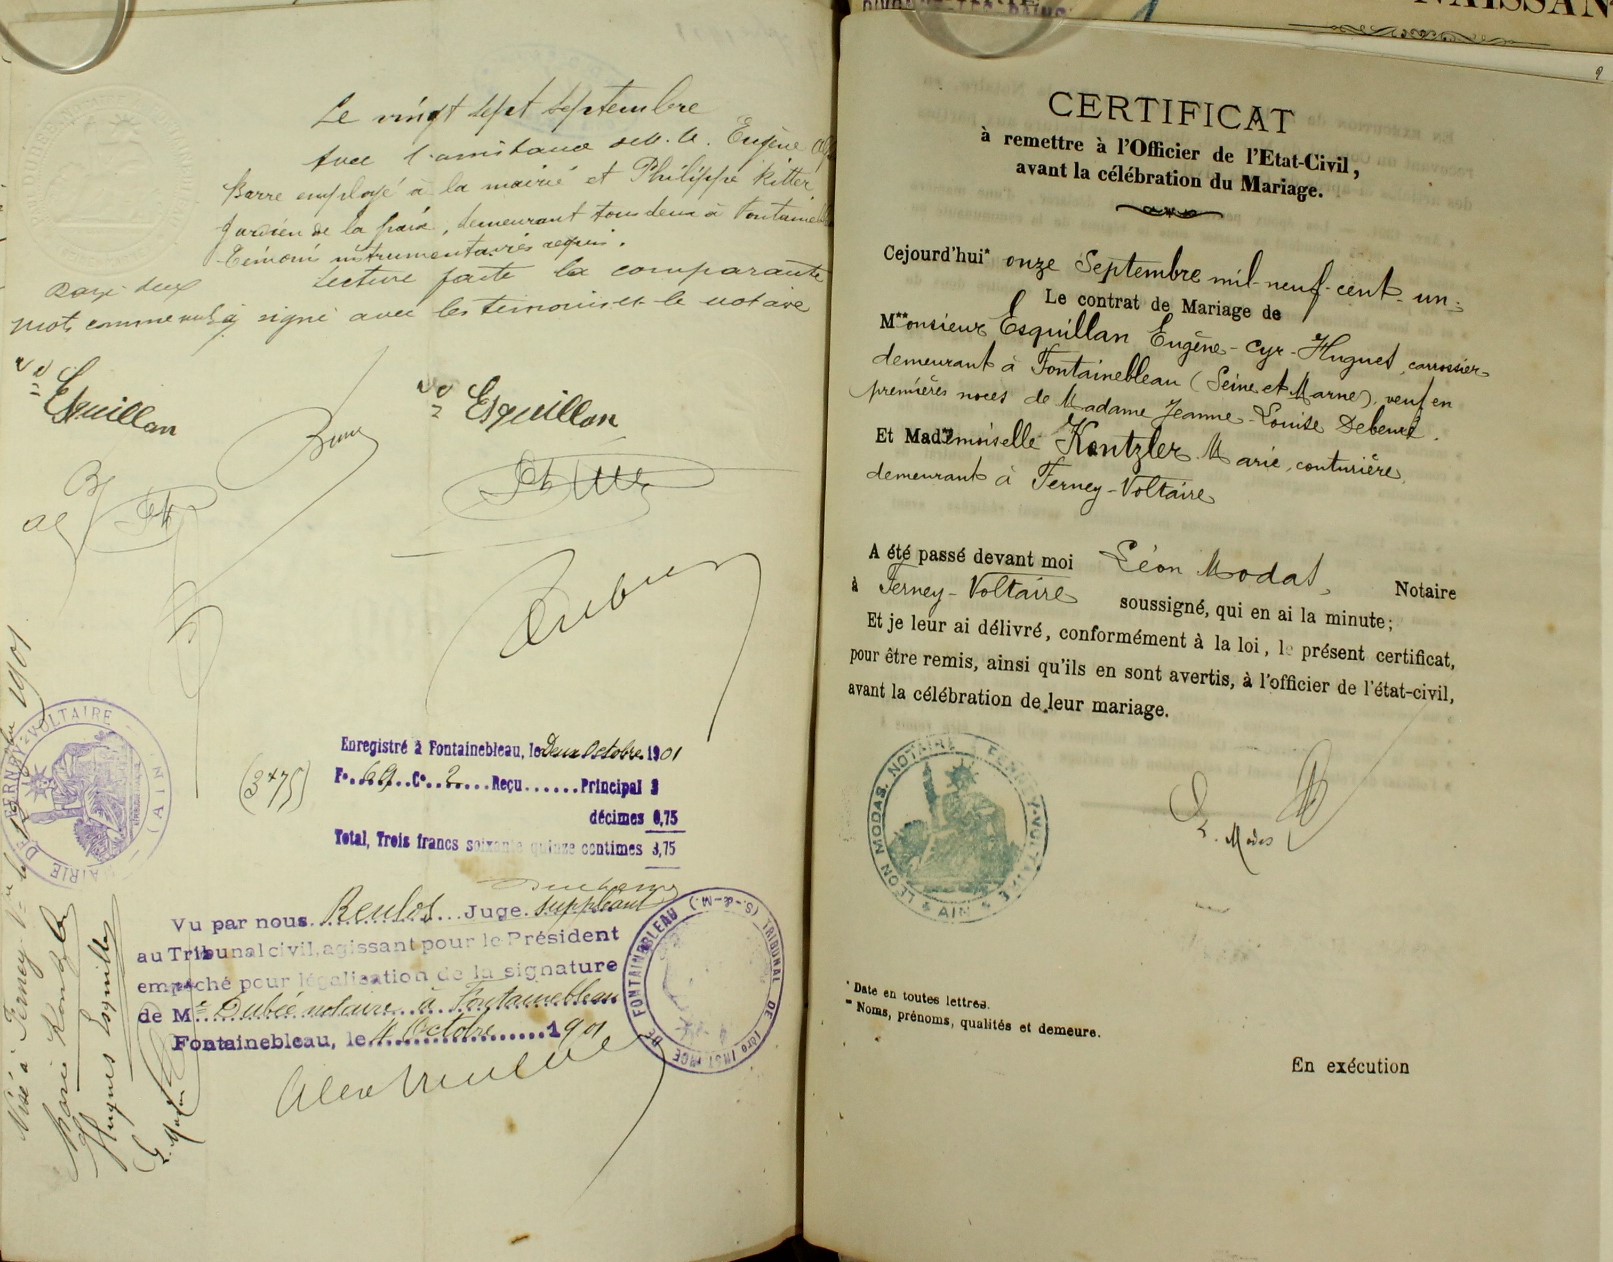 Le vingt sept septembre
Avec l'assistance de M. M. Eugène
Barre employé à la mairie et Philippe Ritter
gardien de la paix, demeurant tous deux à Fontainebl
témoins instrumentaires requis.
Lecture faite la comparante
Rayé deux
mots comme nuls
a signé avec les témoins et le notaire
Vve Esquillan
Vve Esquillan
Enregistré à Fontainebleau, le Deux Octobre 1901
F° 69 C° 2 Reçu Principal 3
décimes 0,75
Total, Trois francs soixante quinze centimes 3,75
(3 75)
Vu par nous Reulos Juge suppléant
au Tribunal civil, agissant pour le Président
empêché pour légalisation de la signature
de Me Dubée notaire à Fontainebleau
Fontainebleau, le 4 Octobre 1901
TRIBUNAL DE 1ère INSTANCE DE FONTAINEBLEAU (S.-&-M.)
MAIRIE DE FERNEY-VOLTAIRE (AIN)
Visé à Ferney-Vre le 1901
Marie Kantzler
Hugues Esquillan
L. Modas
NAISSAN
CERTIFICAT
à remettre à l'Officier de l'Etat-Civil,
avant la célébration du Mariage.
Cejourd'hui* onze Septembre mil-neuf-cent-un
Le contrat de Mariage de
M**onsieur Esquillan Eugène-Cyr-Hugues, carrossier
demeurant à Fontainebleau (Seine et Marne), veuf en
premières noces de Madame Jeanne-Louise Debeuré.
Et Mad**emoiselle Kantzler Marie, couturière,
demeurant à Ferney-Voltaire
A été passé devant moi Léon Modas, Notaire
à Ferney-Voltaire soussigné, qui en ai la minute;
Et je leur ai délivré, conformément à la loi, le présent certificat,
pour être remis, ainsi qu'ils en sont avertis, à l'officier de l'état-civil,
avant la célébration de leur mariage.
LÉON MODAS, NOTAIRE A FERNEY-VOLTAIRE
AIN
L. Modas
* Date en toutes lettres.
** Noms, prénoms, qualités et demeure.
En exécution